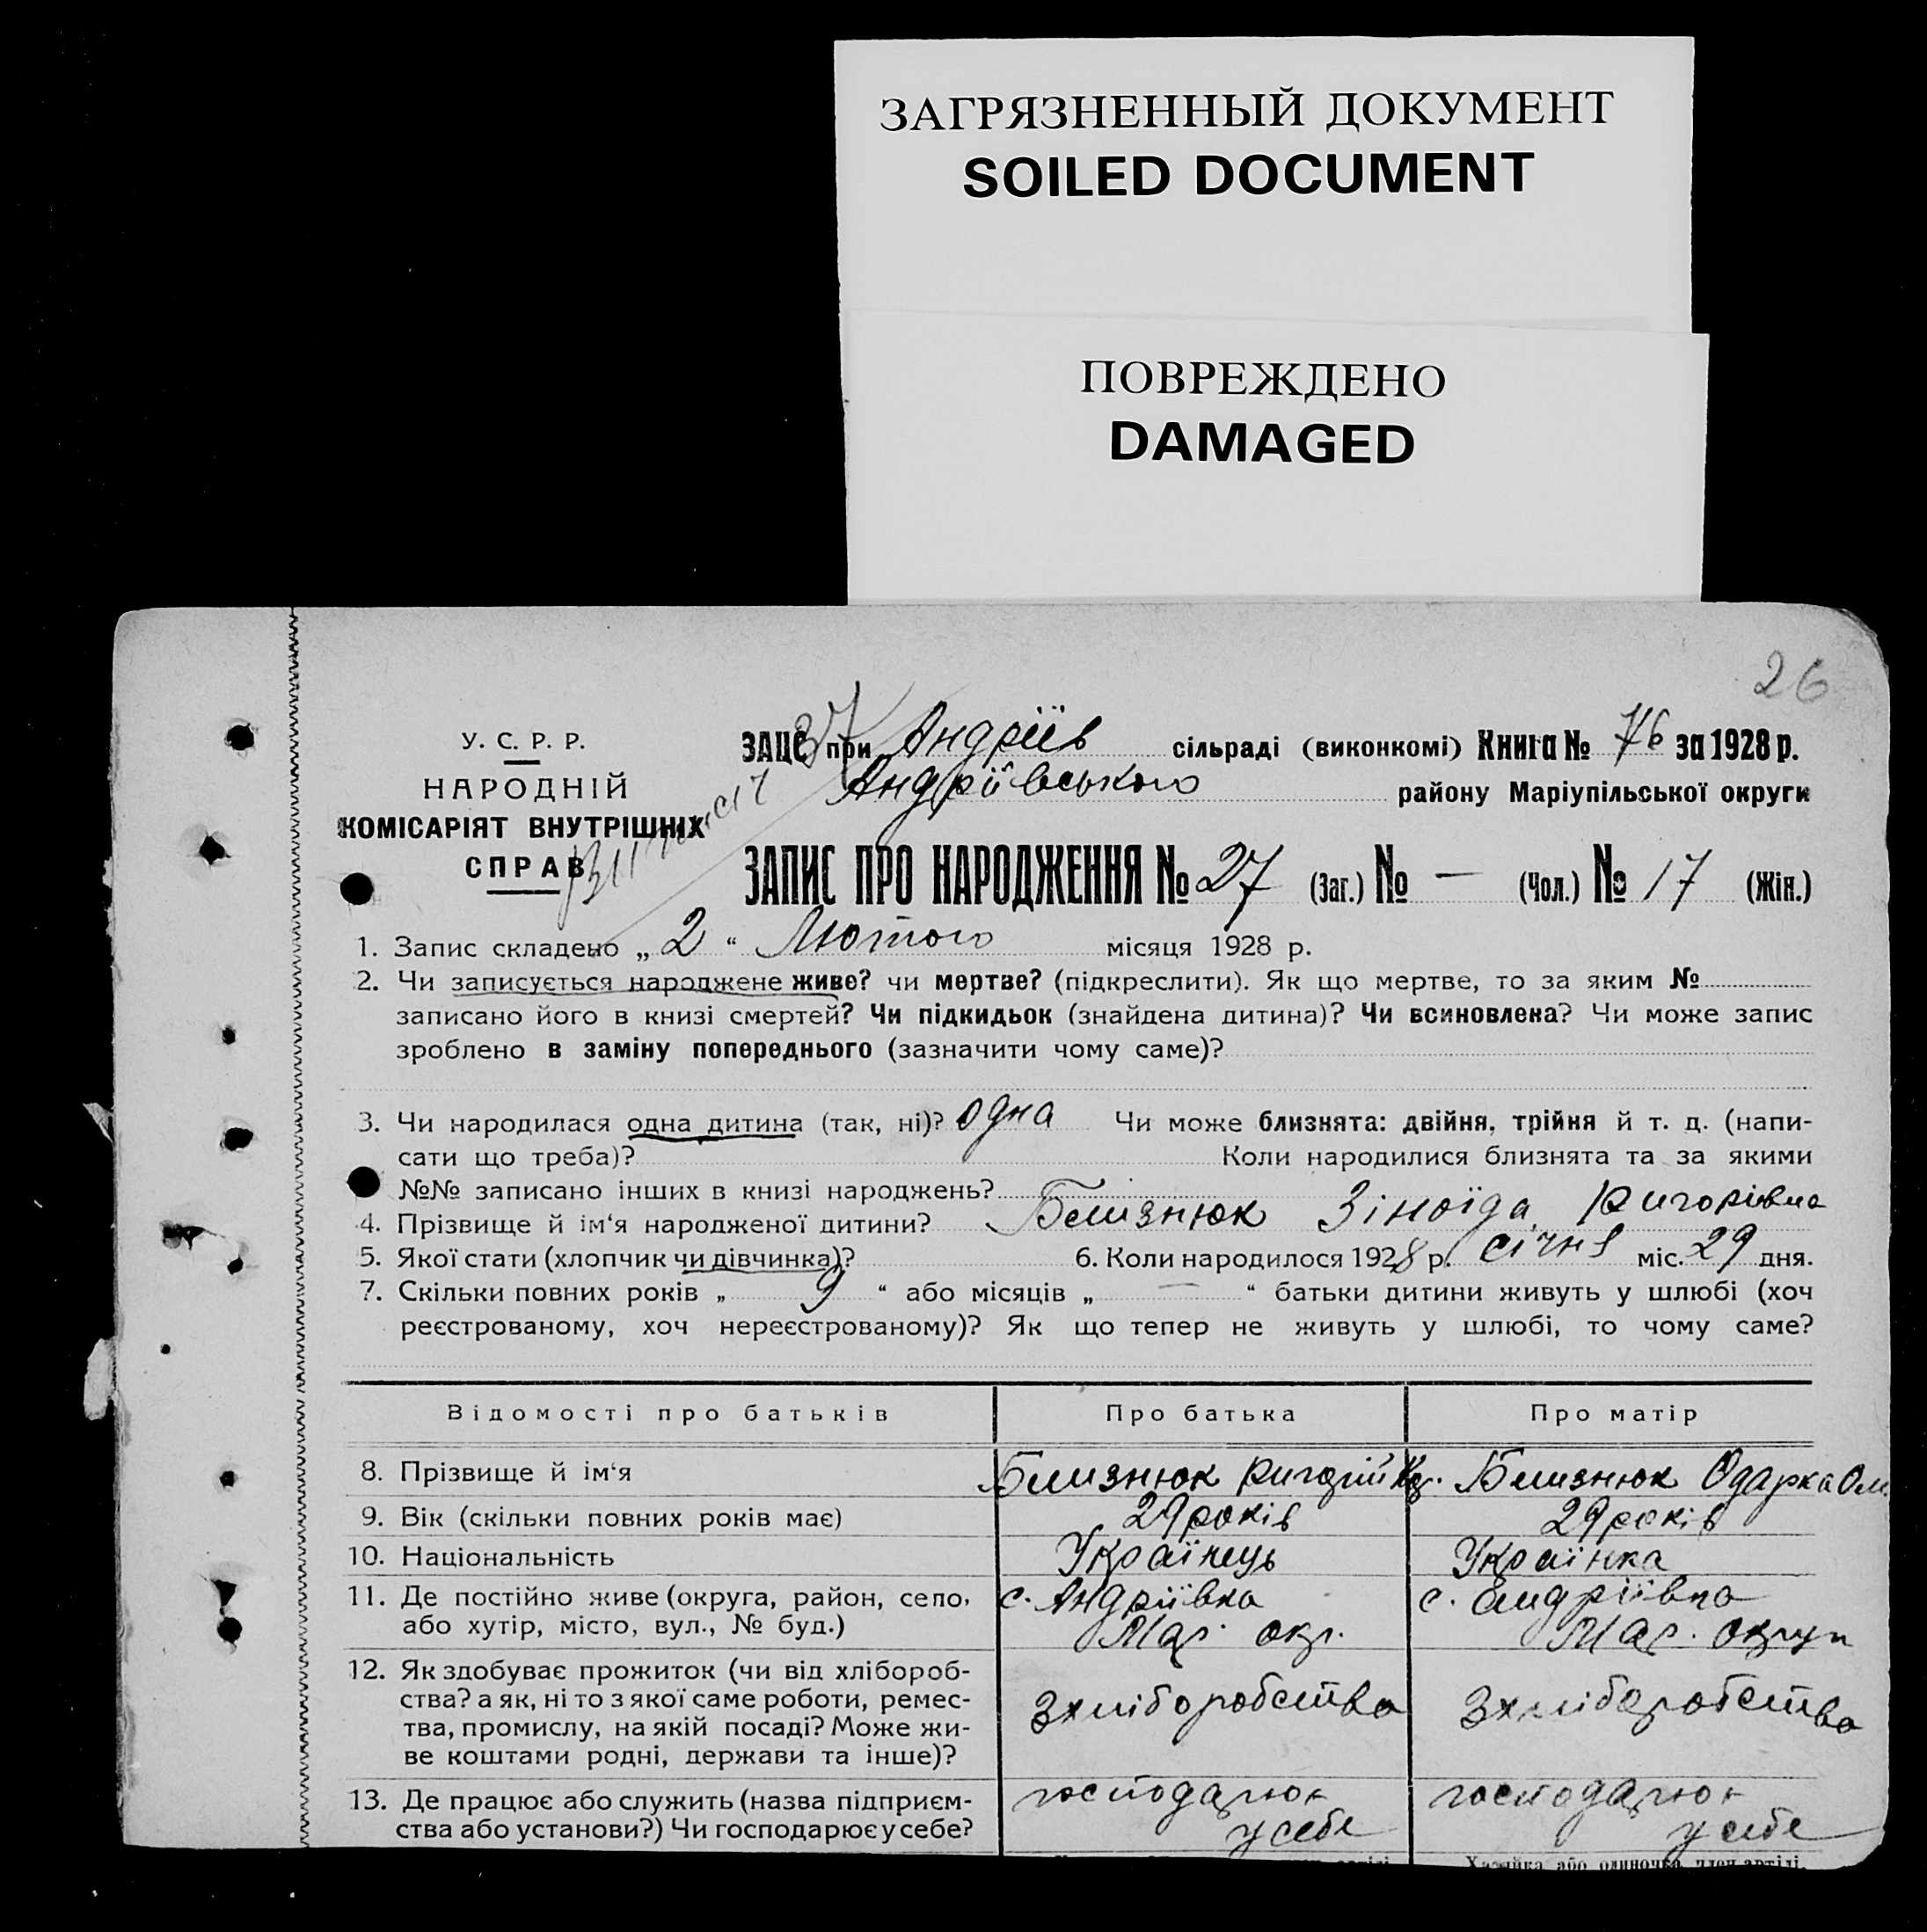 ЗАГРЯЗНЕННЫЙ ДОКУМЕНТ
SOILED DOCUMENT
ПОВРЕЖДЕНО
DAMAGED
26
У. С. Р. Р.
НАРОДНІЙ
КОМІСАРІЯТ ВНУТРІШНІХ
СПРАВ
37
ЗАЦС при Андріїв сільраді (виконкомі) Книга № 76 за 1928 р.
Андріївського району Маріупільської округи
ЗАПИС ПРО НАРОДЖЕННЯ № 27 (Заг.) № — (Чол.) № 17 (Жін.)
1. Запис складено „ 2 “ Лютого місяця 1928 р.
2. Чи записується народжене живе? чи мертве? (підкреслити). Як що мертве, то за яким №
записано його в книзі смертей? Чи підкидьок (знайдена дитина)? Чи всиновлена? Чи може запис
зроблено в заміну попереднього (зазначити чому саме)?
3. Чи народилася одна дитина (так, ні)? одна Чи може близнята: двійня, трійня й т. д. (напи-
сати що треба)? Коли народилися близнята та за якими
№№ записано інших в книзі народжень?
4. Прізвище й ім‘я народженої дитини? Близнюк Зіноїда Григорівна
5. Якої стати (хлопчик чи дівчинка)? 6. Коли народилося 1928 р. січня міс. 29 дня.
7. Скільки повних років „ 9 “ або місяців „ — “ батьки дитини живуть у шлюбі (хоч
реєстрованому, хоч нереєстрованому)? Як що тепер не живуть у шлюбі, то чому саме?
Відомості про батьків Про батька Про матір
8. Прізвище й ім‘я Близнюк Григорій Близнюк Одарка Ом.
9. Вік (скільки повних років має) 29 років 29 років
10. Національність Українець Українка
11. Де постійно живе (округа, район, село, с. Андріївка с. Андріївка
або хутір, місто, вул., № буд.) Мар. окр. Мар. округи
12. Як здобуває прожиток (чи від хлібороб-
ства? а як, ні то з якої саме роботи, ремес- З хліборобства З хліборобства
тва, промислу, на якій посаді? Може жи-
ве коштами родні, держави та інше)?
13. Де працює або служить (назва підприєм- господарює господарює
ства або установи?) Чи господарює у себе? у себе у себе
Хазяйка або одиночка, член артілі,